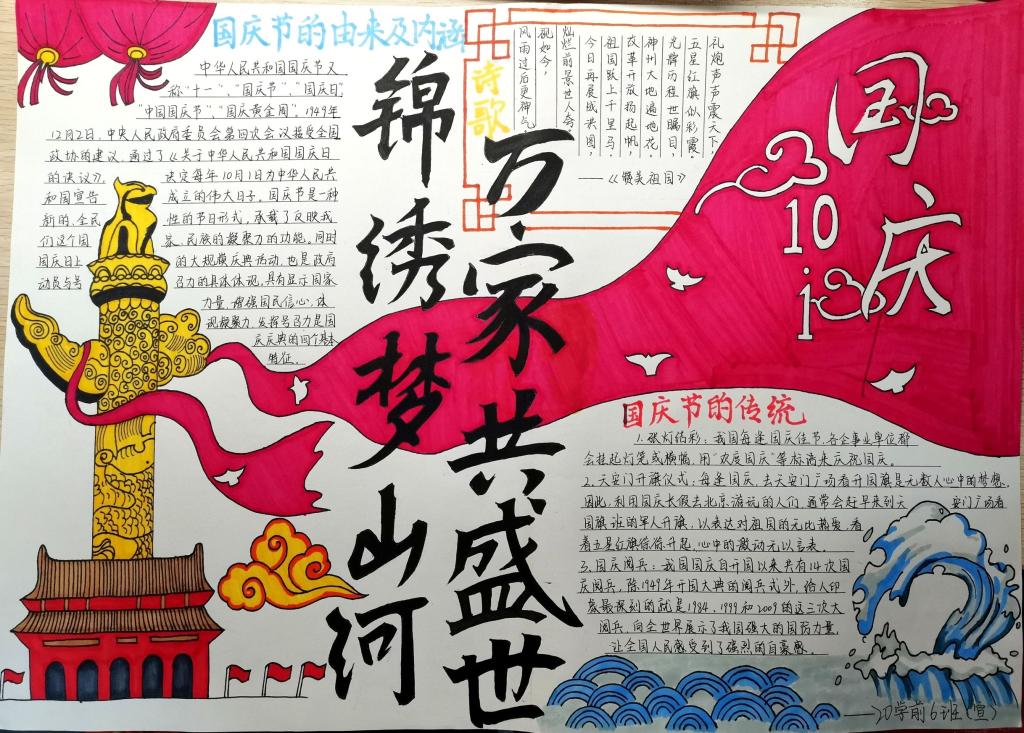 国庆节的由来及内涵
中华人民共和国国庆节又
称"十一"、"国庆节"、"国庆日"、
"中国国庆节"、"国庆黄金周"。1949年
12月2日，中央人民政府委员会第四次会议接受全国
政协的建议，通过了《关于中华人民共和国国庆日
的决议》，决定每年10月1日为中华人民共
和国宣告成立的伟大日子。国庆节是一种
新的、全民性的节日形式，承载了反映我
们这个国家、民族的凝聚力的功能。同时
国庆日上的大规模庆典活动，也是政府
动员与号召力的具体体现。具有显示国家
力量、增强国民信心，体
现凝聚力，发挥号召力是国
庆庆典的四个基本
特征。
锦绣梦山河
万家共盛世
诗歌
礼炮声声震天下，
五星红旗似彩霞。
光辉历程世瞩目，
神州大地遍地花。
改革开放扬起帆，
祖国跃上千里马。
今日再展城共图，
灿烂前景世人夸。
砚如今，
风雨过后更神气。
——《赞美祖国》
国庆
10
1
国庆节的传统
1.张灯结彩：我国每逢国庆佳节，各企事业单位都
会挂起灯笼或横幅，用"欢度国庆"等标语来庆祝国庆。
2.天安门升旗仪式：每逢国庆，去天安门广场看升国旗是无数人心中的梦想
因此，利用国庆长假去北京游玩的人们，通常会赶早来到天安门广场看
国旗班的军人升旗，以表达对祖国的无比热爱，看
着五星红旗徐徐升起，心中的激动无以言表。
3.国庆阅兵：我国国庆自开国以来共有14次国
庆阅兵，除1949年开国大典的阅兵式外，给人印
象最深刻的就是1984，1999和2009的这三次大
阅兵，向全世界展示了我国强大的国防力量，
让全国人民感受到了强烈的自豪感。
——20学前6班(宣)